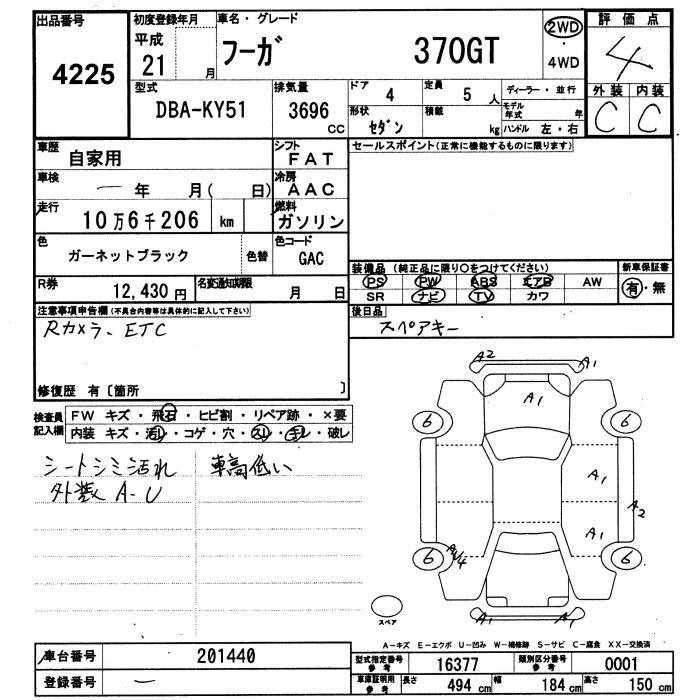 出品番号 4225
初度登録年月 平成 21 月
車名・グレード フーガ 370GT
2WD ・ 4WD
評価点 4
外装 C 内装 C
型式 DBA-KY51
排気量 3696 cc
ドア 4
定員 5 人
形状 セダン
積載 kg
ディーラー・並行
モデル年式 年
ハンドル 左・右
車歴 自家用
シフト FAT
車検 一 年 月( 日)
冷房 AAC
走行 10万6千206 km
燃料 ガソリン
色 ガーネットブラック 色替
色コード GAC
R券 12,430円
名変通知期限 月 日
セールスポイント(正常に機能するものに限ります)
装備品 (純正品に限り○をつけてください)
PS PW ABS エアB AW
SR ナビ TV カワ
新車保証書 有・無
後日品 スペアキー
注意事項申告欄(不具合内容等は具体的に記入して下さい)
Rカメラ、ETC
修復歴 有〔箇所 〕
検査員記入欄
FW キズ・飛石・ヒビ割・リペア跡・×要
内装 キズ・汚レ・コゲ・穴・スレ・キレ・破レ
シートシミ汚れ 車高低い
外装 A-U
A2 A1
A1
6 6
A1
A2
A1
6 6
A1 A1
スペア
A-キズ E-エクボ U-凹み W-補修跡 S-サビ C-腐食 XX-交換済
車台番号 201440
登録番号 一
型式指定番号 参考 16377
類別区分番号 参考 0001
車庫証明用 参考 長さ 494 cm 幅 184 cm 高さ 150 cm